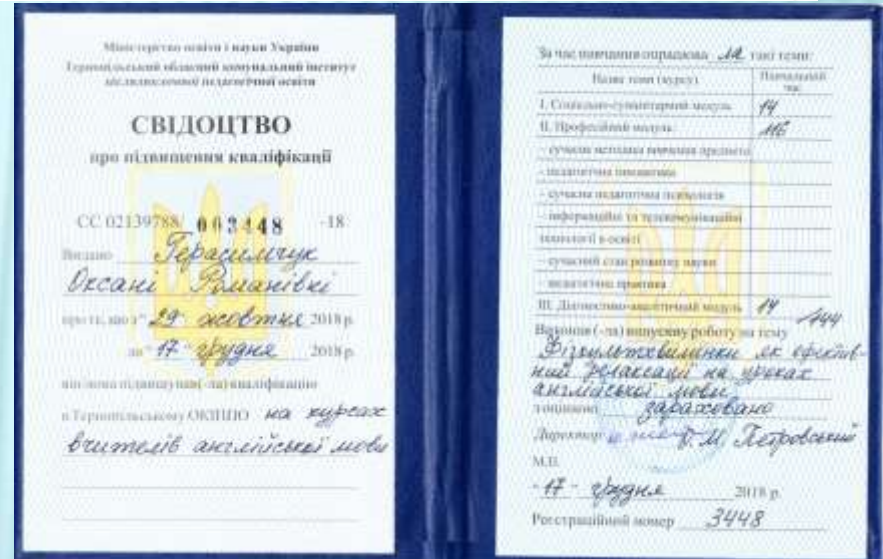 Міністерство освіти і науки України
Тернопільський обласний комунальний інститут
післядипломної педагогічної освіти
СВІДОЦТВО
про підвищення кваліфікації
СС 02139788/ 003448 -18
Видано Герасимчук
Оксані Романівні
про те, що з " 29 " жовтня 2018 р.
до " 17 " грудня 2018 р.
він/вона підвищував(-ла) кваліфікацію
в Тернопільському ОКІППО на курсах
вчителів англійської мови
За час навчання опрацюва ла такі теми:
Назва теми (курсу)
Навчальний
час
І. Соціально-гуманітарний модуль 14
ІІ. Професійний модуль: 116
- сучасна методика вивчення предмета
- педагогічна інноватика
- сучасна педагогічна психологія
- інформаційні та телекомунікаційні
технології в освіті
- сучасний стан розвитку науки
- педагогічна практика
ІІІ. Діагностико-аналітичний модуль 14
144
Виконав (-ла) випускну роботу на тему
Фізкультхвилинки як ефектив-
ний релаксації на уроках
англійської мови
з оцінкою зараховано
Директор О. М. Петровський
М.П.
" 17 " грудня 2018 р.
Реєстраційний номер 3448